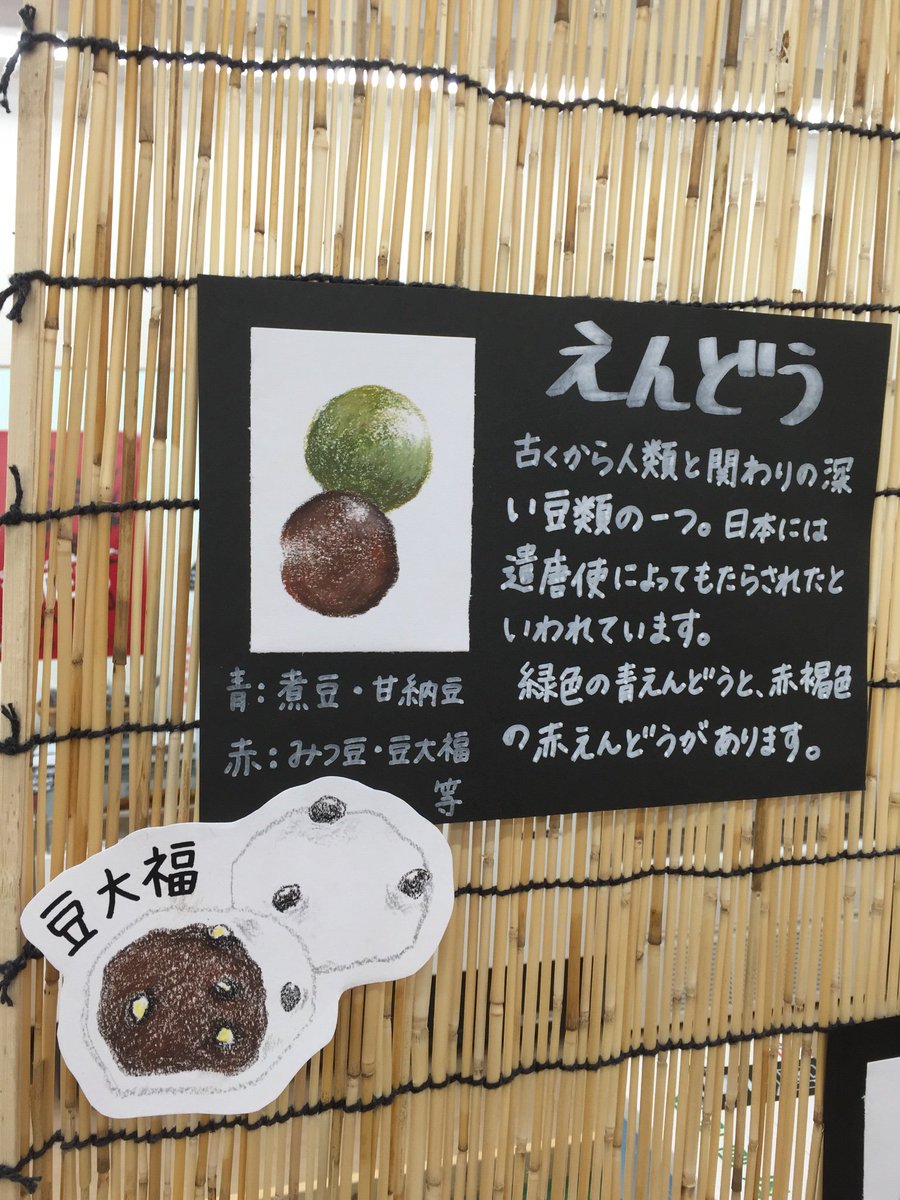 えんどう
古くから人類と関わりの深
い豆類の一つ。日本には
遣唐使によってもたらされたと
いわれています。
緑色の青えんどうと、赤褐色
の赤えんどうがあります。
青：煮豆・甘納豆
赤：みつ豆・豆大福
等
豆大福